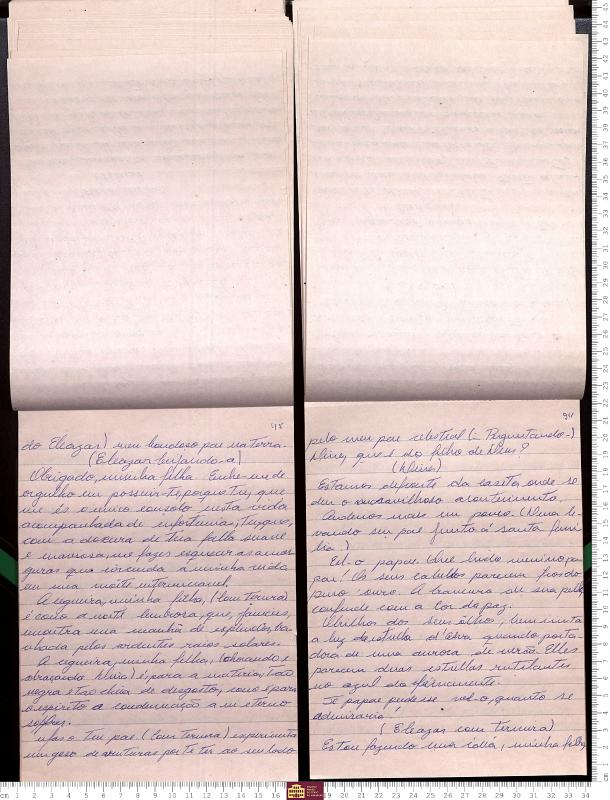 48
do Eleazar) meu bondoso pae na terra.
(Eleazar beijando-a)
Obrigado, minha filha. Enche-me de
orgulho em possuir-te, porque tu, que
me és o unico consolo nesta vida
acompanhada de infortunios, tu, que,
com a doçura de tua falla suave
e maviosa, me fazes esquecer as amar
guras que circunda a minha vida
em uma noite interminavel.
A cegueira, minha filha, (com ternura)
é como a noite tenebrosa, que,
encontra uma manhã de esplendor, ba
nhada pelos ardentes raios solares.
A cegueira, minha filha, (chorando e
abraçando Dina) é, para a materia, tão
negra e tão cheia de desgostos, como é para
o espirito a condemnação a um eterno
soffrer.
Mas o teu pae (com ternura) experimenta
um goso de venturas por te ter ao seu lado
94
pelo meu pae celestial (– Perguntando-)
Dina, que é do filho de Deus?
(Dina)
Estamos defronte da caseta, onde se
deu o maravilhoso acontecimento.
Andemos mais um pouco. (Dina le-
vando seu pae junto á santa fami
lia.)
Eil-o, papae. Que lindo menino, pa
pae! Os seus cabellos parecem fios do
puro ouro. A brancura de sua pelle
confunde com a cor da paz.
O brilhos dos seus olhos, bem imita
a luz da estrella d'Alva quando porta-
dora de uma aurora de verão. Elles
parecem duas estrellas rutilantes
no azul do firmamento.
Se papae pudesse vel-o, quanto se
admiraria!
(Eleazar com ternura)
Estou fazendo uma idéa, minha filha,